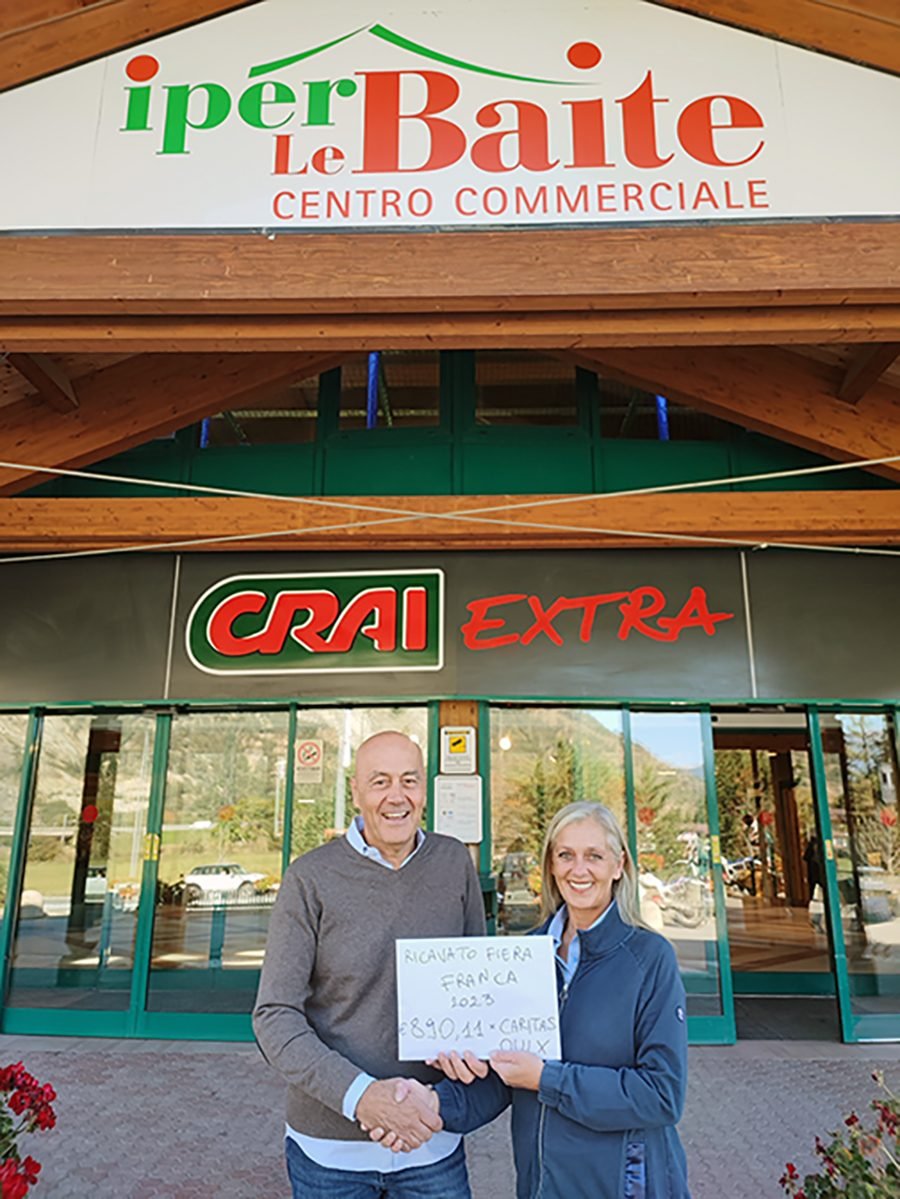 iper Le Baite
CENTRO COMMERCIALE
CRAI EXTRA
RICAVATO FIERA
FRANCA
2023
€890,11 x CARITAS
OULX